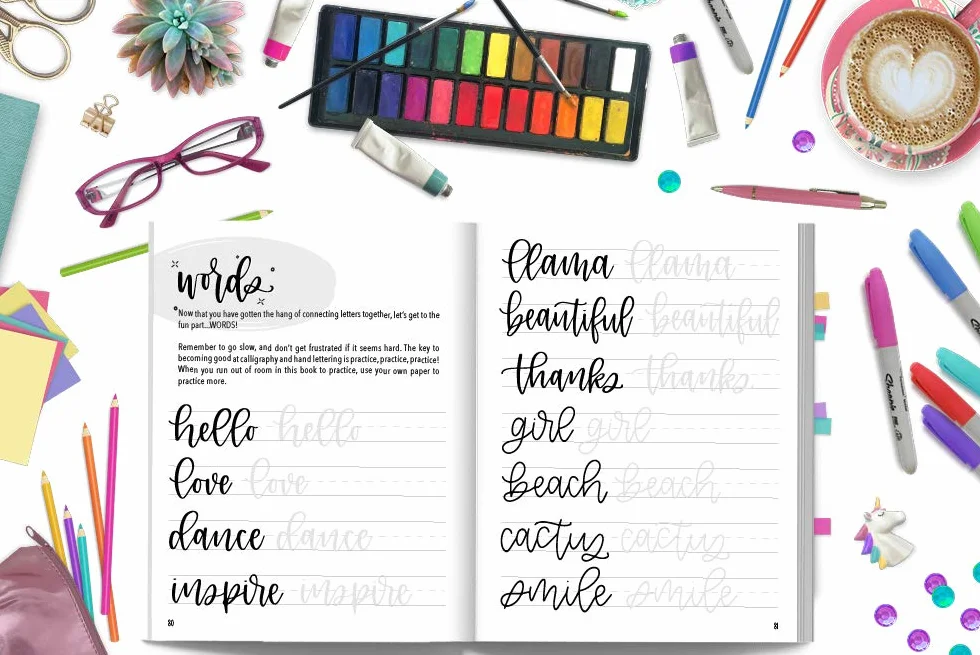 words
Now that you have gotten the hang of connecting letters together, let's get to the
fun part...WORDS!
Remember to go slow, and don't get frustrated if it seems hard. The key to
becoming good at calligraphy and hand lettering is practice, practice, practice!
When you run out of room in this book to practice, use your own paper to
practice more.
hello hello
love love
dance dance
inspire inspire
80
llama llama
beautiful beautiful
thanks thanks
girl girl
beach beach
cactus cactus
smile smile
81
Sharpie